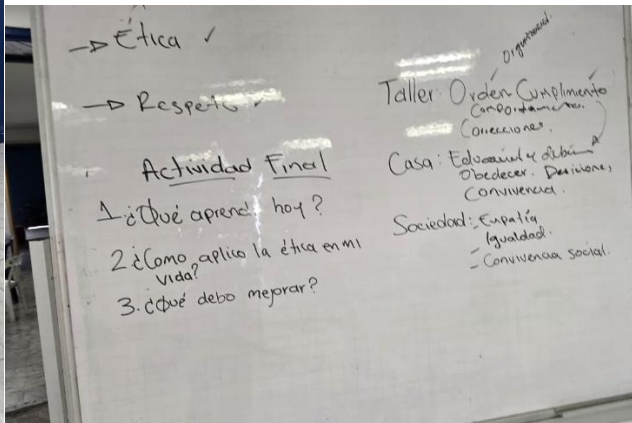 → Ética ✓
→ Respeto ✓
Actividad Final
1. ¿Qué aprendi hoy?
2 ¿Como aplico la ética en mi
vida?
3. ¿Qué debo mejorar?
Taller: Orden Cumplimiento
Correcciones.
Casa:
Obedecer. Decisiones,
Convivencia.
Sociedad: Empatía
Igualdad.
- Convivencia social.